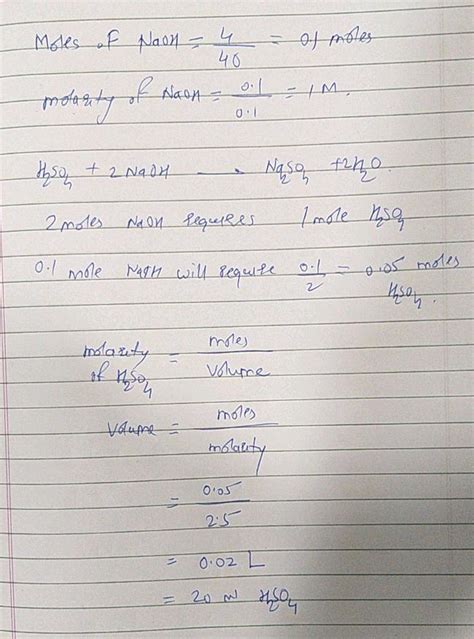 Moles of NaOH = 4/40 = 0.1 moles
molarity of NaOH = 0.1/0.1 = 1 M.
H₂SO₄ + 2 NaOH → Na₂SO₄ + 2H₂O.
2 moles NaOH requires 1 mole H₂SO₄
0.1 mole NaOH will require 0.1/2 = 0.05 moles
H₂SO₄.
molarity of H₂SO₄ = moles/volume
volume = moles/molarity
= 0.05/2.5
= 0.02 L
= 20 ml H₂SO₄